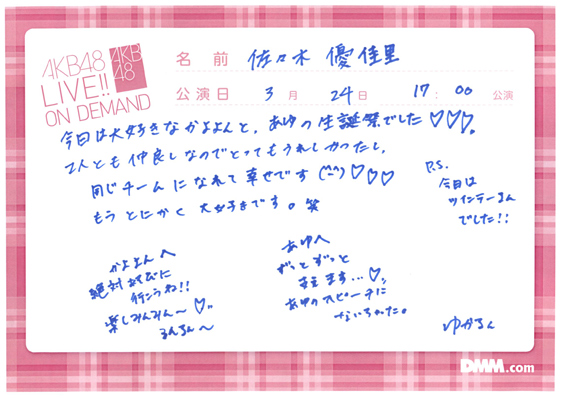 AKB48
LIVE!!
ON DEMAND
AKB
48
名前 佐々木 優佳里
公演日 3月24日 17:00 公演
今日は大好きなかよよんと、あゆの生誕祭でした♡♡♡。
2人とも仲良しなのでとってもうれしかったし、
同じチームになれて幸せです(^^)♡♡♡
もうとにかく大好きです。笑
P.S.
今日は
ツインテーるん
でした!!
かよよんへ
絶対あそびに
行こうね!!
楽しみみん〜♡
るんるん〜
あゆへ
ずっとずっと
支えます...♡
あゆのスピーチに
ないちゃった。
ゆかるん
DMM.com